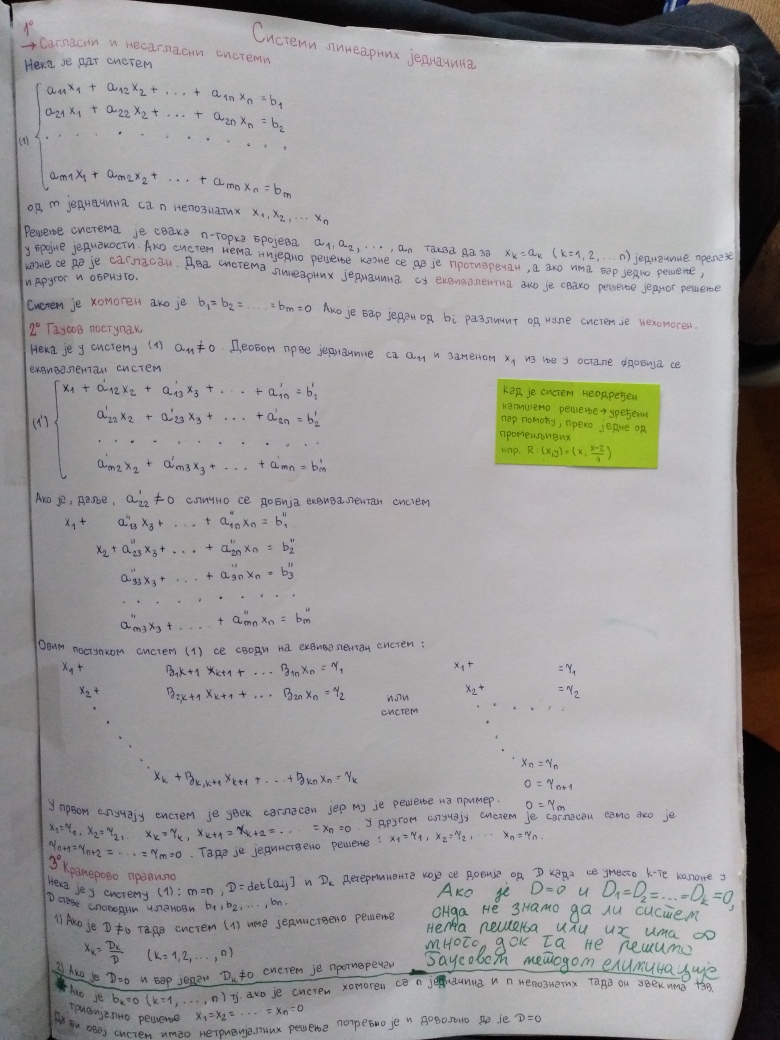 Системи линеарних једначина
1°
→ Сагласни и несагласни системи
Нека је дат систем
a11x1 + a12x2 + ... + a1n xn = b1
a21x1 + a22x2 + ... + a2n xn = b2
. . . . . . . . .
(1)
am1x1 + am2x2 + ... + amn xn = bm
од m једначина са n непознатих x1, x2, ... xn
Решење система је свака n-торка бројева a1, a2, ..., an таква да за xk = ak (k=1,2,...n) једначине прелазе
у бројне једнакости. Ако систем нема ниједно решење каже се да је противречан, а ако има бар једно решење,
каже се да је сагласан. Два система линеарних једначина су еквивалентна ако је свако решење једног решење
и другог и обрнуто.
Систем је хомоген ако је b1 = b2 = .... = bm = 0 Ако је бар један од bi различит од нуле систем је нехомоген.
2° Гаусов поступак
Нека је у систему (1) a11 ≠ 0. Деобом прве једначине са a11 и заменом x1 из ње у остале добија се
еквивалентан систем
x1 + a'12x2 + a'13x3 + ... + a'1n = b'1
(1') a'22x2 + a'23x3 + ... + a'2n = b'2
. . . . . . . . .
a'm2x2 + a'm3x3 + ... + a'mn = b'm
Кад је систем неодређен
напишемо решење → уређени
пар помоћу, преко једне од
променљивих
нпр. R: (x,y) = (x, (x-2)/4)
Ако је, даље, a'22 ≠ 0 слично се добија еквивалентан систем
x1 + a''13x3 + ... + a''1n xn = b''1
x2 + a''23x3 + ... + a''2n xn = b''2
a''33x3 + ... + a''3n xn = b''3
. . . . . . .
a''m3x3 + .... + a''mn xn = b''m
Овим поступком систем (1) се своди на еквивалентан систем:
x1 + B1k+1 xk+1 + ... B1n xn = γ1 x1 + = γ1
x2 + B2k+1 xk+1 + ... B2n xn = γ2 или x2 + = γ2
систем
xn = γn
xk + Bk,k+1 xk+1 + ... + Bkn xn = γk 0 = γn+1
0 = γm
У првом случају систем је увек сагласан јер му је решење на пример.
x1 = γ1, x2 = γ2, xk = γk, xk+1 = xk+2 = .... = xn = 0 У другом случају систем је сагласан само ако је
γn+1 = γn+2 = .... = γm = 0. Тада је јединствено решење: x1 = γ1, x2 = γ2, ... xn = γn.
3° Крамерово правило
Нека је у систему (1): m = n, D = det[aij] и Dk детерминанта која се добија од D када се уместо k-те колоне у
D ставе слободни чланови b1, b2, ..., bn.
1) Ако је D ≠ 0 тада систем (1) има јединствено решење
xk = Dk/D (k=1,2,...,n)
2) Ако је D=0 и бар један Dk ≠ 0 систем је противречан
Ако је D=0 и D1=D2=...=Dk=0,
онда не знамо да ли систем
нема решења или их има ∞
много, док га не решимо
Гаусовом методом елиминације
* Ако је bk = 0 (k=1,...,n) тј. ако је систем хомоген са n једначина и n непознатих тада он увек има тзв.
тривијално решење x1 = x2 = ... = xn = 0
Да би овај систем имао нетривијалних решења потребно је и довољно да је D=0